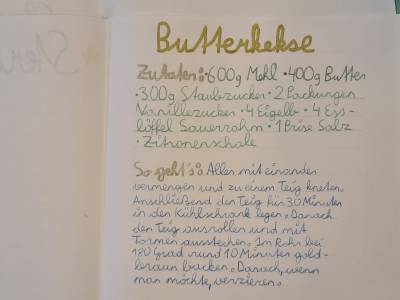 Butterkekse
Zutaten: • 600g Mehl • 400g Butter
• 300g Staubzucker • 2 Packungen
Vanillezucker • 4 Eigelb • 4 Ess-
löffel Sauerrahm • 1 Prise Salz
• Zitronenschale
So geht's: Alles miteinander
vermengen und zu einem Teig kneten.
Anschließend den Teig für 30 Minuten
in den Kühlschrank legen. Danach
den Teig ausrollen und mit
Formen ausstechen. Im Rohr bei
180 Grad rund 10 Minuten gold-
braun backen. Danach, wenn
man möchte, verzieren.